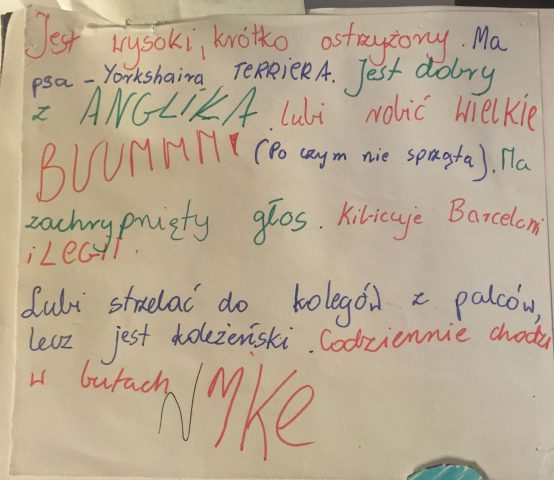 Jest wysoki, krótko ostrzyżony. Ma
psa - Yorkshaira TERRIERA. Jest dobry
z ANGLIKA. lubi robić WIELKIE
BUUMMM! (Po czym nie sprząta). Ma
zachrypnięty głos. Kibicuje Barceloni
i LEGII.
Lubi strzelać do kolegów z palców,
lecz jest koleżeński. Codziennie chodzi
w butach NIKE